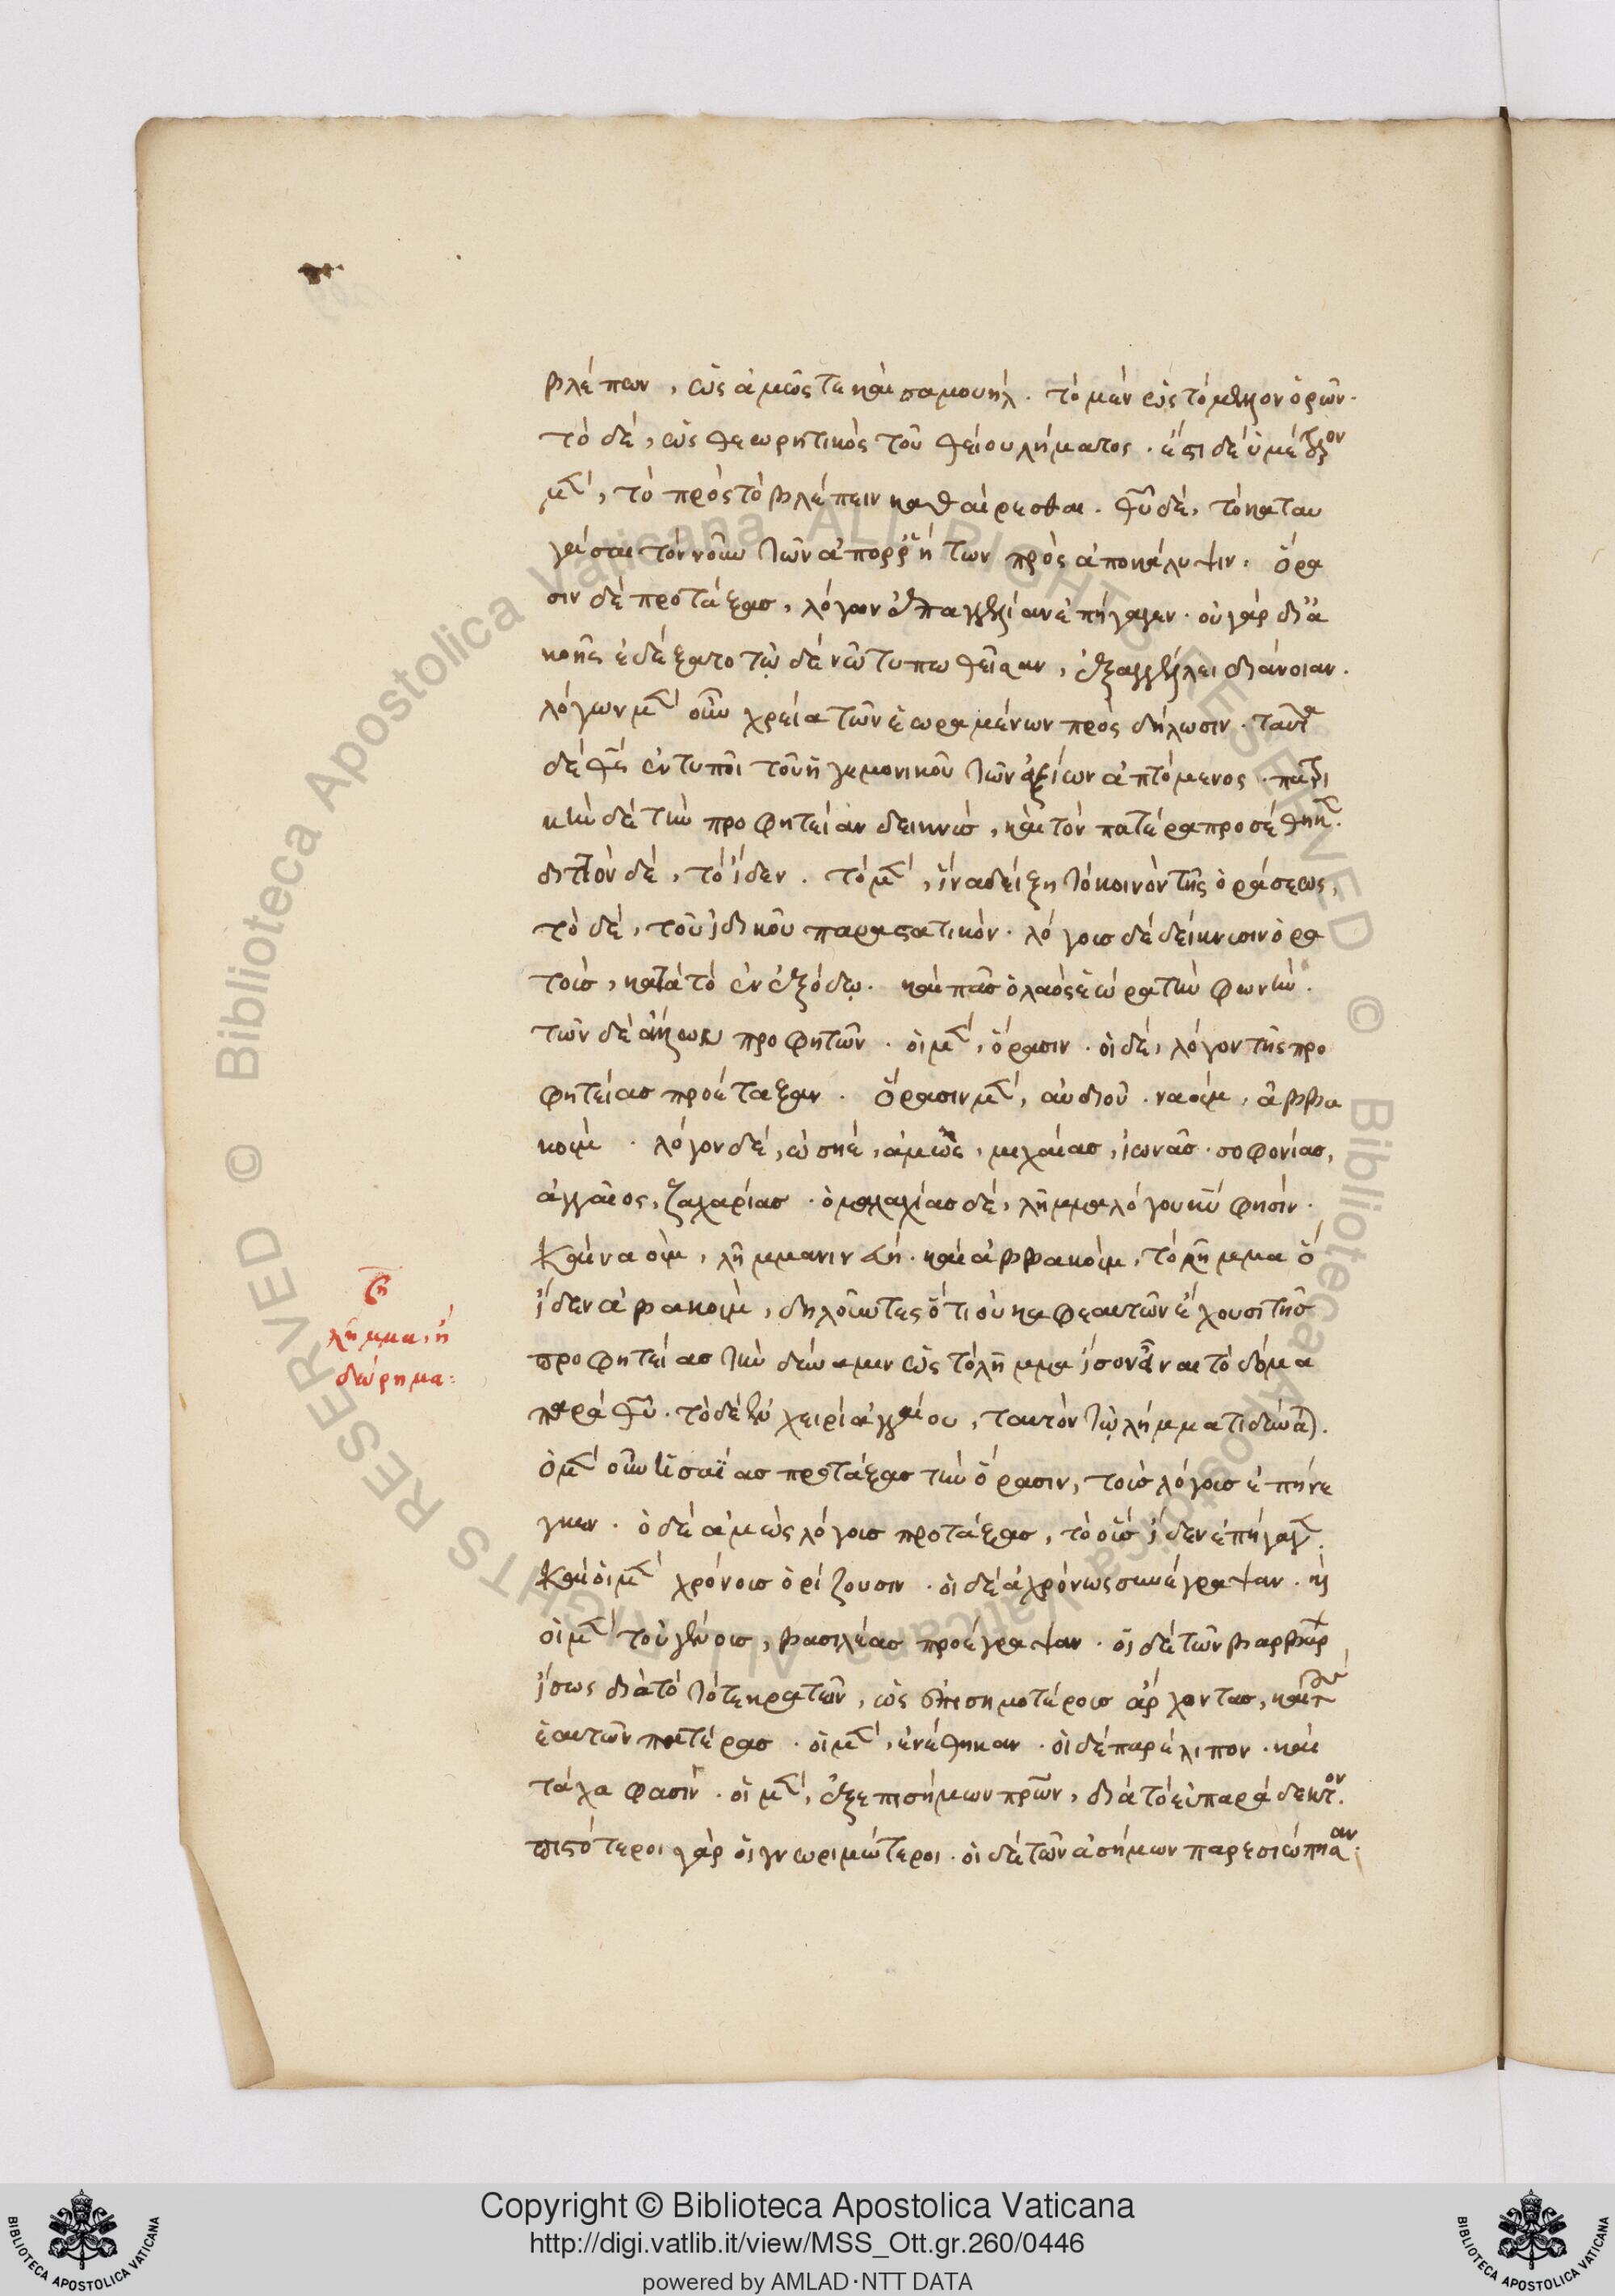 βλέπων, ὡς ἀμώς τε καὶ σαμουήλ. τὸ μὲν ὡς τὸ μέλλον ὁρῶν.
τὸ δέ, ὡς θεωρητικὸς τοῦ θείου λήματος. ἔστι δὲ ὑμέτερον
μὲν, τὸ πρὸς τὸ βλέπειν καθαίρεσθαι. θυ δέ, τὸ καταυ
γάσαι τὸν νοῦν τῶν ἀπορρήτων πρὸς ἀποκάλυψιν. ὅρα
σιν δὲ προτάξας, λόγων ἐπαγγελίαν ἐπήγαγεν. οὐ γὰρ δι' ἀ
κοῆς ἐδέξατο τῷ δὲ νῷ τυπωθεῖσαν, ἐξαγγέλλει διάνοιαν.
λόγων μὲν οὖν χρεία τῶν ἑωραμένων πρὸς δήλωσιν. ταῦτα
δὲ θς ἐντυποῖ τοῦ ἡγεμονικοῦ τῶν ἀξίων ἁπτόμενος. πατρι
κὴν δὲ τὴν προφητείαν δεικνὺς, καὶ τὸν πατέρα προσέθηκεν.
διττὸν δέ, τὸ ἴδεν. τὸ μὲν, ἵνα δείξῃ τὸ κοινὸν τῆς ὁράσεως,
τὸ δέ, τοῦ ἰδικοῦ παραστατικόν. λόγοις δὲ δείκνυσιν ὁρα
τοῖς, κατὰ τὸ ἐν ἐξόδῳ. καὶ πᾶς ὁ λαὸς ἑώρα τὴν φωνήν.
τῶν δὲ προφητῶν. οἱ μὲν, ὅρασιν. οἱ δέ, λόγον τῆς προ
φητείας προέταξαν. ὅρασιν μὲν, αὐδιοῦ. ναούμ, ἀββα
κούμ. λόγον δέ, ὡσηέ, ἀμώς, μιχαίας, ἰωνᾶς. σοφονίας,
ἀγγαῖος, ζαχαρίας. ὁ μαλαχίας δέ, λῆμμα λόγου κυ φησίν.
καὶ ναούμ, λῆμμα νινευή. καὶ ἀββακούμ, τὸ λῆμμα ὃ
ἴδεν ἀβακούμ, δηλοῦντες ὅτι οὐκ ἀφ' ἑαυτῶν ἔχουσι τῆς
προφητείας τὴν δύναμιν ὡς τὸ λῆμμα ἴσον εἶναι τὸ δόμα
παρὰ θυ. τὸ δὲ ἐν χειρὶ ἀγγαίου, ταυτὸν τῷ λήμματι δύναται.
ὁ μὲν οὖν ἡσαΐας προτάξας τὴν ὅρασιν, τοὺς λόγους ἐπήνε
γκεν. ὁ δὲ ἀμὼς λόγους προτάξας, τὸ οὓς ἴδεν ἐπήγαγεν.
καὶ οἱ μὲν χρόνους ὁρίζουσιν. οἱ δὲ ἀχρόνως συνέγραψαν. καὶ
οἱ μὲν τοῦ γένους, βασιλέας προέγραψαν. οἱ δὲ τῶν βαρβάρων
ἴσως διὰ τὸ τότε κρατεῖν, ὡς ἐπισημοτέρους ἄρχοντας, καὶ τοὺς
ἑαυτῶν πατέρας. οἱ μὲν, ἐνέθηκαν. οἱ δὲ παρέλιπον. καὶ
τάχα φασὶν. οἱ μὲν, ἐξ ἐπισήμων πρων, διὰ τὸ εὐπαράδεκτον.
πιστότεροι γὰρ οἱ γνωριμώτεροι. οἱ δὲ τῶν ἀσήμων παρεσιώπησαν.
λῆμμα, ἢ
δώρημα:
Copyright © Biblioteca Apostolica Vaticana
http://digi.vatlib.it/view/MSS_Ott.gr.260/0446
powered by AMLAD·NTT DATA
BIBLIOTECA APOSTOLICA VATICANA
BIBLIOTECA APOSTOLICA VATICANA